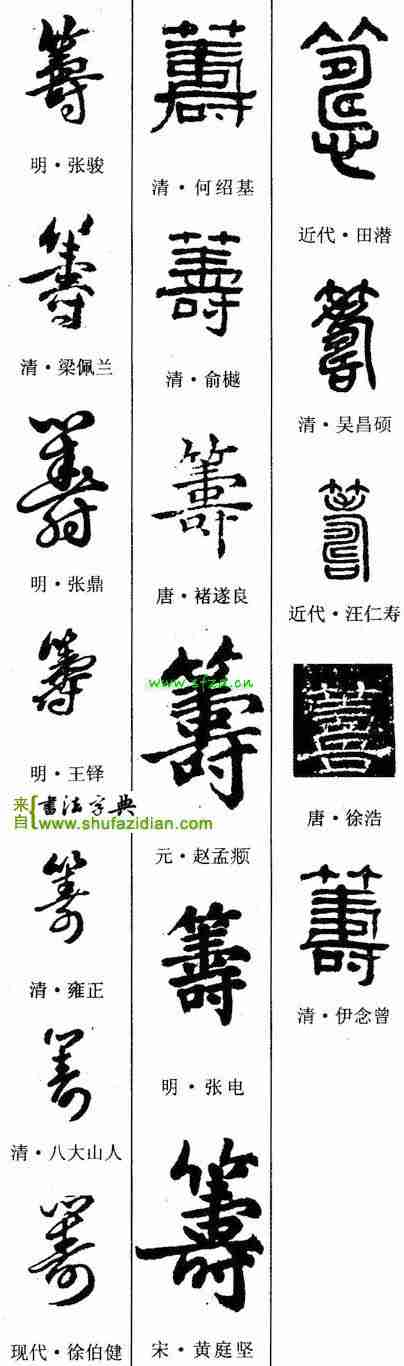 籌
近代·田潜
籌
清·吴昌硕
籌
近代·汪仁寿
籌
唐·徐浩
籌
清·伊念曾
籌
清·何绍基
籌
清·俞樾
籌
唐·褚遂良
www.sfzd.cn
籌
元·赵孟頫
籌
明·张电
籌
宋·黄庭坚
籌
明·张骏
籌
清·梁佩兰
籌
明·张鼎
籌
明·王铎
来自
書法字典
www.shufazidian.com
籌
清·雍正
籌
清·八大山人
籌
现代·徐伯健